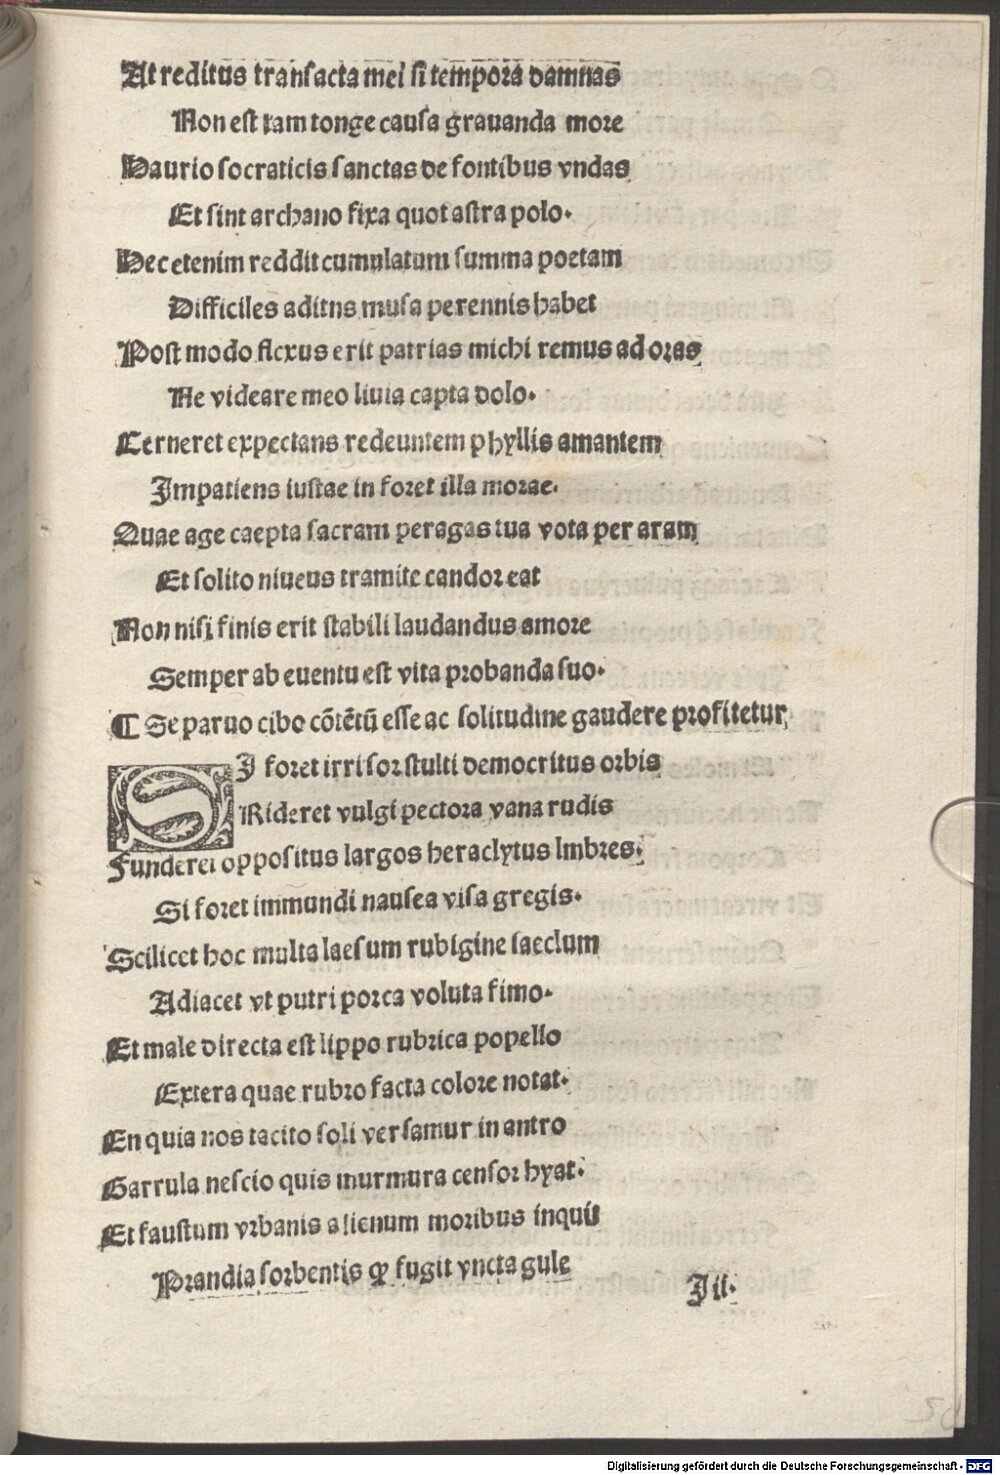 At reditus transacta mei si tempora damnas
Non est tam tonge causa grauanda more
Haurio socraticis sanctas de fontibus vndas
Et sint archano fixa quot astra polo.
Hec etenim reddit cumulatum summa poetam
Difficiles aditns musa perennis habet
Post modo flexus erit patrias michi remus ad oras
Ne videare meo liuia capta dolo.
Cerneret expectans redeuntem phyllis amantem
Impatiens iustae in foret illa morae.
Quae age caepta sacram peragas tua vota per aram
Et solito niueus tramite candor eat
Non nisi finis erit stabili laudandus amore
Semper ab euentu est vita probanda suo.
¶ Se paruo cibo cõtẽtũ esse ac solitudine gaudere profitetur
SI foret irrisor stulti democritus orbis
Rideret vulgi pectora vana rudis
Funderet oppositus largos heraclytus Imbres.
Si foret immundi nausea visa gregis.
Scilicet hoc multa laesum rubigine saeclum
Adiacet vt putri porca voluta fimo.
Et male directa est lippo rubrica popello
Extera quae rubro facta colore notat.
En quia nos tacito soli versamur in antro
Garrula nescio quis murmura censor hyat.
Et faustum vrbanis alienum moribus inquit
Prandia sorbentis qꝫ fugit vncta gule
J ii.
Digitalisierung gefördert durch die Deutsche Forschungsgemeinschaft - DFG